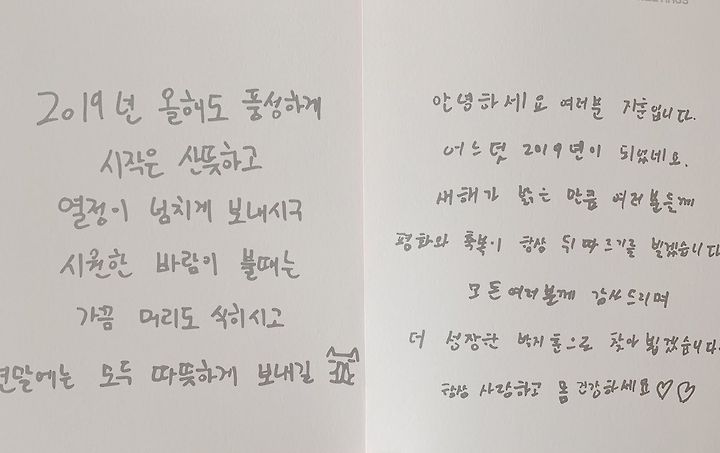 2019년 올해도 풍성하게
시작은 산뜻하고
열정이 넘치게 보내시구
시원한 바람이 불때는
가끔 머리도 식히시고
연말에는 모두 따뜻하게 보내길
안녕하세요 여러분 지훈입니다.
어느덧 2019년이 되었네요.
새해가 밝은 만큼 여러분들께
평화와 축복이 항상 뒤따르기를 빌겠습니다
모든여러분께 감사드리며
더 성장한 박지훈으로 찾아뵙겠습니다.
항상 사랑하고 몸 건강하세요♡♡